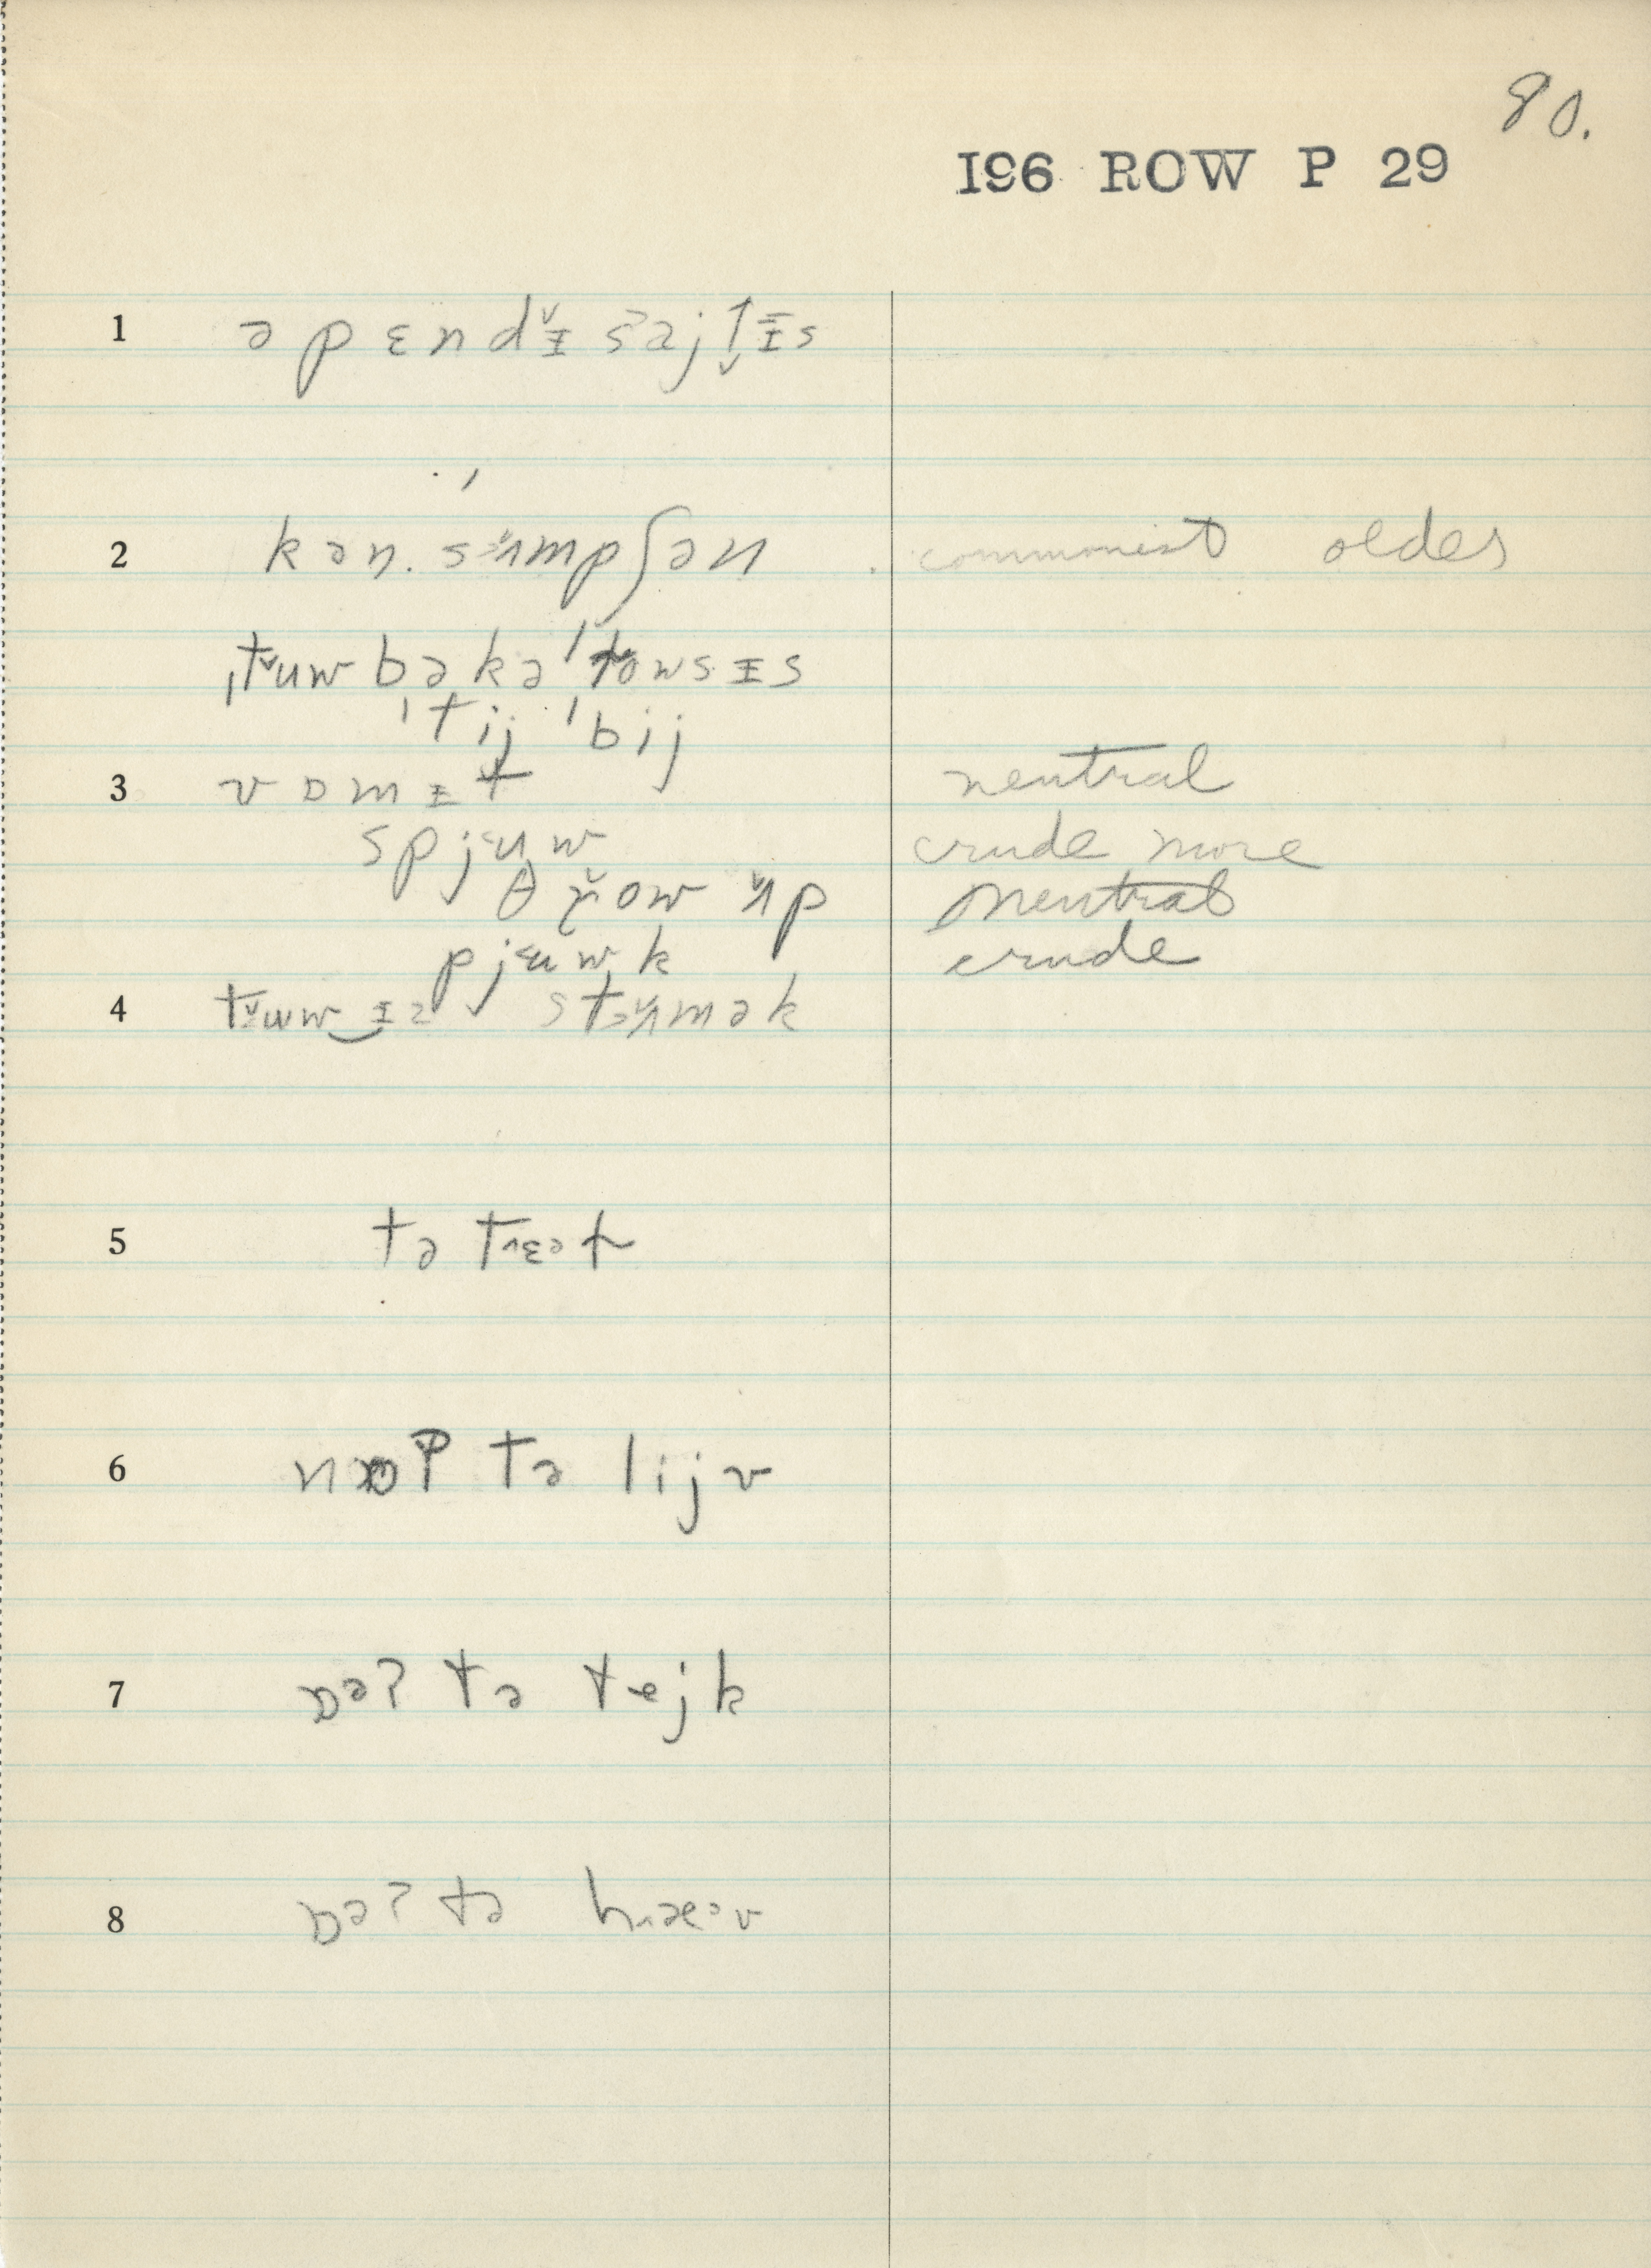 80.
I96 ROW P 29
1 əpɛndᵻ̌səjtᵻs
2 kən.sʌmpʃən commonist oldes
ˌtʉwbəkəˈtowsᵻs
ˈtij ˈbij
3 vɒmᵻt neutral
spjʉw crude more
θrow ʌp neutral
pjʉwk crude
4 tʉw ᵻz stʌmək
5 tə trɛət
6 nɒʔ tə lijv
7 ɒəʔ tə tejk
8 ɒəʔ tə hæəv